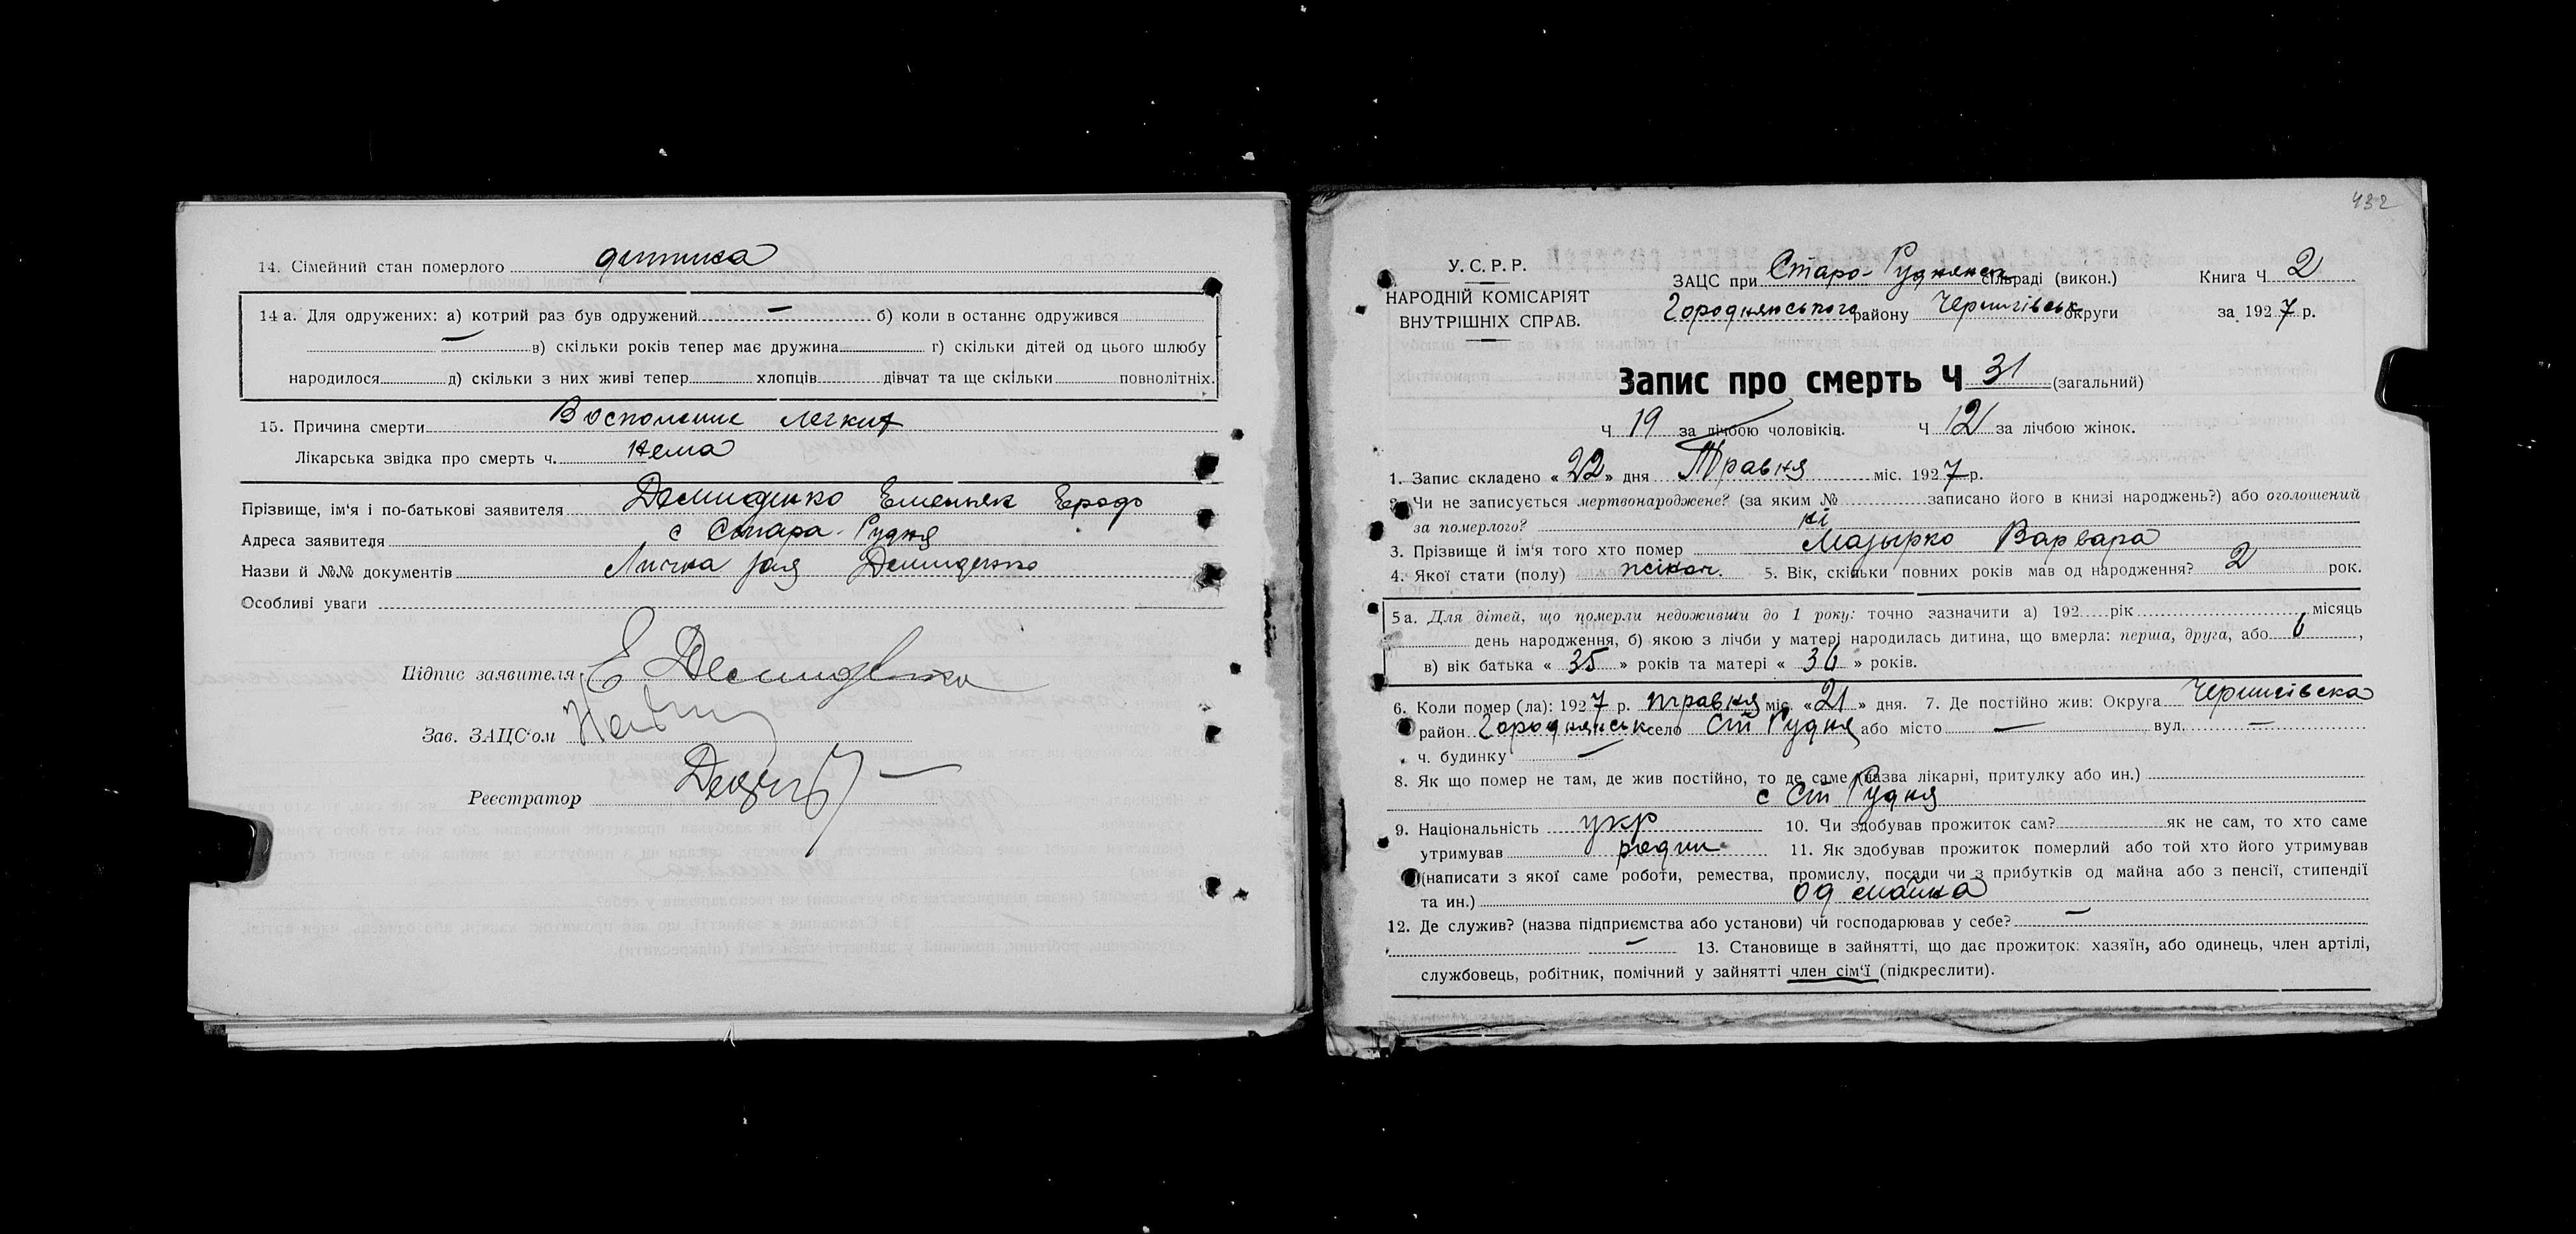 14. Сімейний стан померлого дитина
14 а. Для одружених: а) котрий раз був одружений — б) коли в останнє одружився
— в) скільки років тепер має дружина г) скільки дітей од цього шлюбу
народилося д) скільки з них живі тепер хлопців дівчат та ще скільки повнолітніх.
15. Причина смерти Восполение легких
Лікарська звідка про смерть ч. нема
Прізвище, ім'я і по-батькові заявителя Демиденко
Адреса заявителя с Стара-Рудня
Назви й №№ документів Лична Демиденко
Особливі уваги
Підпис заявителя Е Демиденко
Зав. ЗАЦС'ом
Реєстратор
432
У. С. Р. Р.
НАРОДНІЙ КОМІСАРІЯТ
ВНУТРІШНІХ СПРАВ.
ЗАЦС при Старо-Руднянськ сільраді (викон.) Книга Ч 2
Городнянського району Чернигівськ округи за 1927 р.
Запис про смерть Ч 31 (загальний)
Ч 19 за лічбою чоловіків. Ч 12 за лічбою жінок.
1. Запис складено « 22 » дня Травня міс. 1927 р.
2. Чи не записується мертвонароджене? (за яким № записано його в книзі народжень?) або оголошений
за померлого? ні
3. Прізвище й ім'я того хто помер Мазырко Варвара
4. Якої стати (полу) жіноч. 5. Вік, скільки повних років мав од народження? 2 рок.
5 а. Для дітей, що померли недоживши до 1 року: точно зазначити а) 192 рік місяць
день народження, б) якою з лічби у матері народилась дитина, що вмерла: перша, друга, або 6 ,
в) вік батька « 35 » років та матері « 36 » років.
6. Коли помер (ла): 1927 р. травня міс. «21» дня. 7. Де постійно жив: Округа Чернигівска
район Городнянськ село Ст Рудня або місто — вул. —
ч. будинку —
8. Як що помер не там, де жив постійно, то де саме (назва лікарні, притулку або ин.)
с Ст Рудня
9. Національність укр 10. Чи здобував прожиток сам? як не сам, то хто саме
утримував родин 11. Як здобував прожиток померлий або той хто його утримував
(написати з якої саме роботи, ремества, промислу, посади чи з прибутків од майна або з пенсії, стипендії
та ин.) од майна
12. Де служив? (назва підприємства або установи) чи господарював у себе? —
— 13. Становище в зайнятті, що дає прожиток: хазяїн, або одинець, член артілі,
службовець, робітник, помічний у зайнятті член сім'ї (підкреслити).